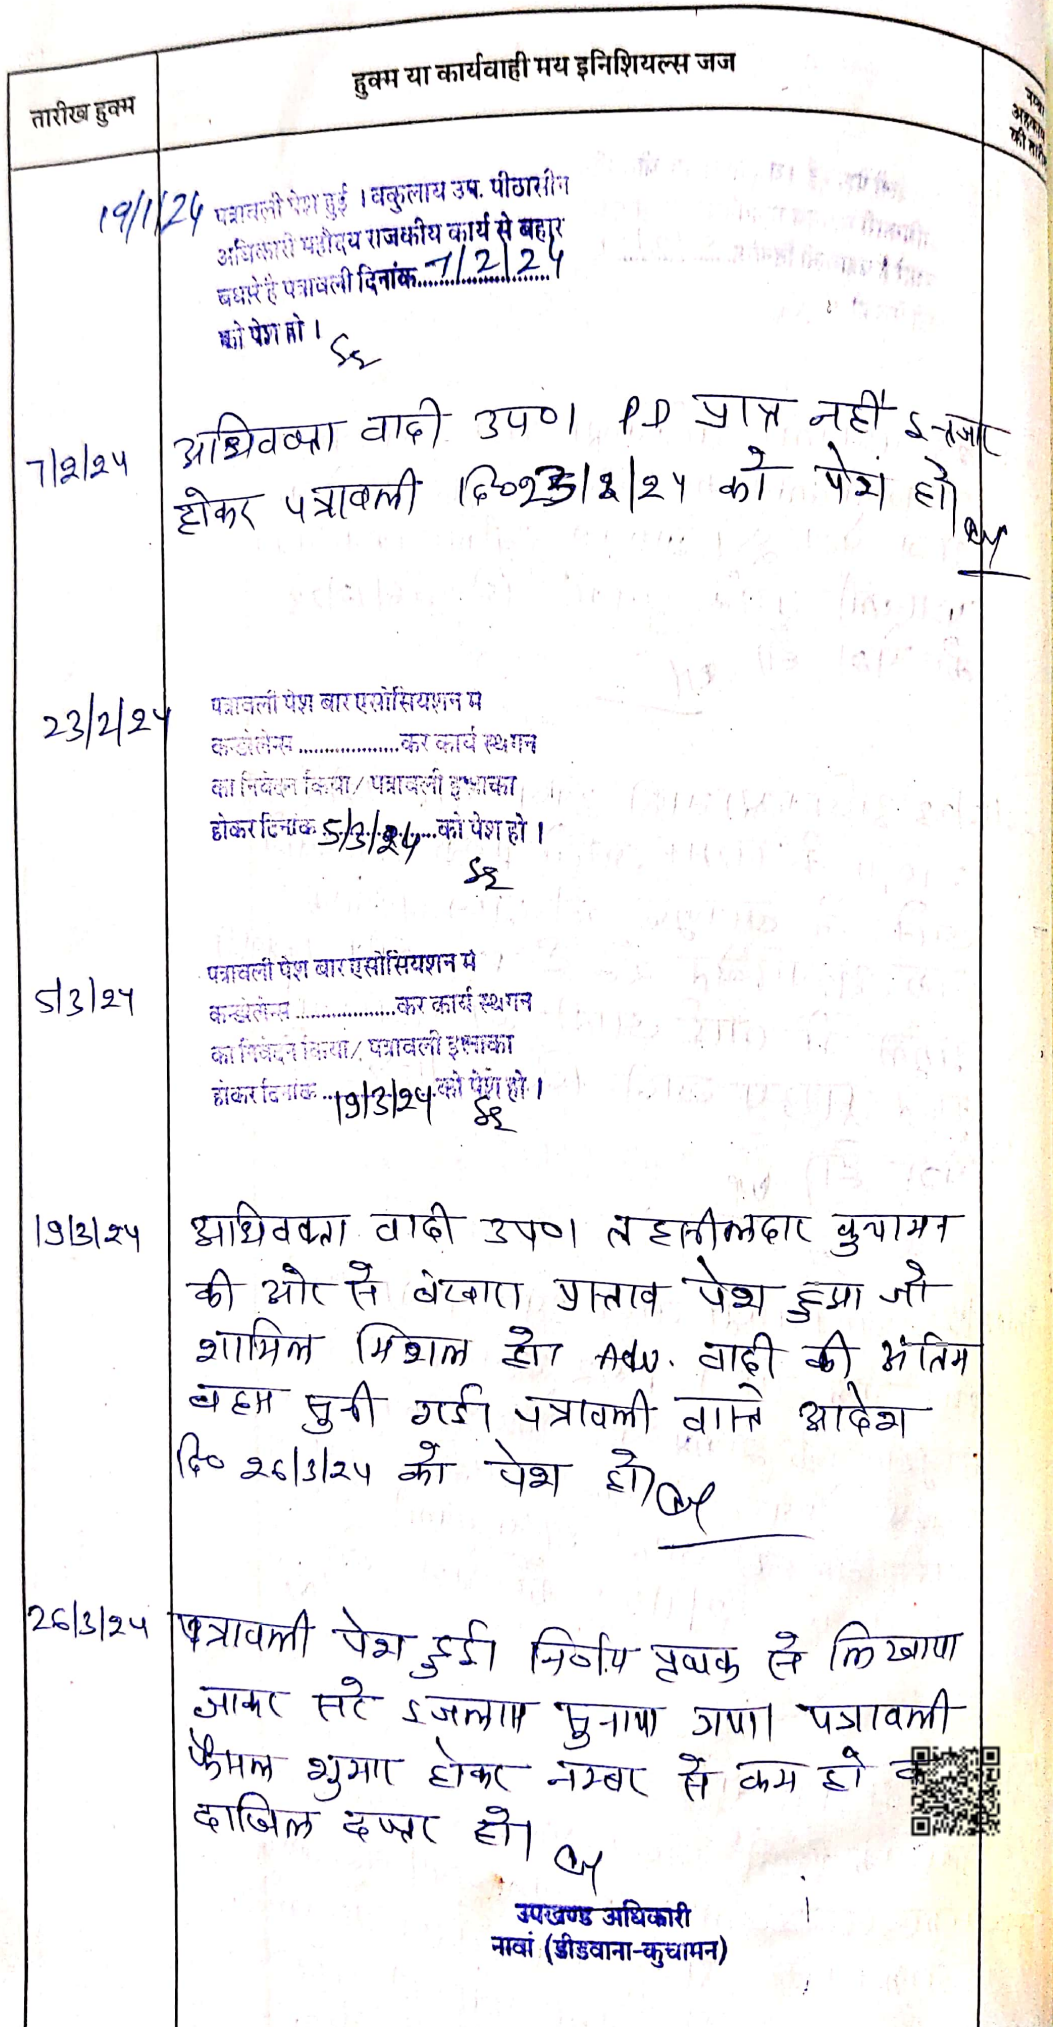 हुक्म या कार्यवाही मय इनिशियल्स जज
तारीख हुक्म
अहकाम
की तारीख
19/1/24
पत्रावली पेश हुई । वकुलाय उप. पीठासीन
अधिकारी महौदय राजकीय कार्य से बहार
पधारे है पत्रावली दिनांक 7/2/24
को पेश हो ।
7/2/24
अधिवक्ता वादी उप०। P.D प्राप्त नहीं इन्तजार
होकर पत्रावली दि० 23/2/24 को पेश हो।
23/2/24
पत्रावली पेश बार एसोसियशन मे
कन्डोलेन्स ................... कर कार्य स्थगन
का निवेदन किया/ पत्रावली
होकर दिनांक 5/3/24 को पेश हो ।
5/3/24
पत्रावली पेश बार एसोसियशन मे
कन्डोलेन्स ................... कर कार्य स्थगन
का निवेदन किया/ पत्रावली
होकर दिनांक 19/3/24 को पेश हो ।
19/3/24
अधिवक्ता वादी उप०। तहसीलदार कुचामन
की ओर से बंटवारा प्रस्ताव पेश हुआ जो
शामिल मिशल हो। Adv. वादी की अंतिम
बहस सुनी गई। पत्रावली वास्ते आदेश
दि० 26/3/24 को पेश हो।
26/3/24
पत्रावली पेश हुई। निर्णय पृथक से लिखाया
जाकर सरे इजलास सुनाया गया। पत्रावली
फैसल शुमार होकर नम्बर से कम हो
दाखिल दफ्तर हो।
उपखण्ड अधिकारी
नावां (डीडवाना-कुचामन)